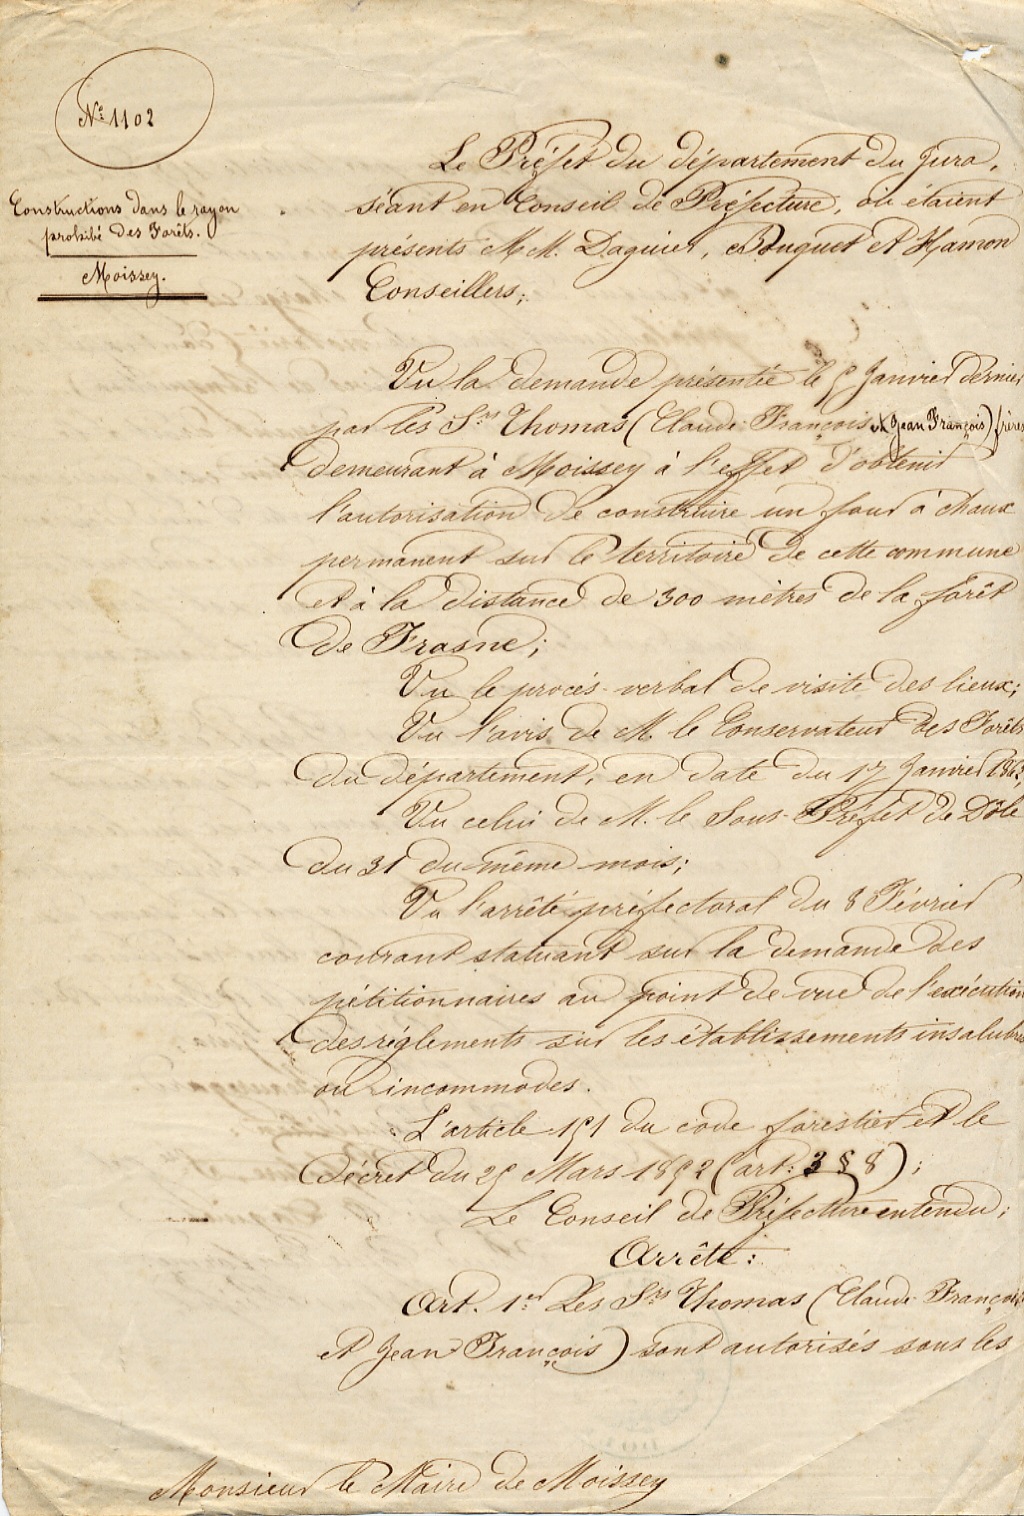 N° 1102
Constructions dans le rayon
prohibé des Forêts.
Moissey.
Le Préfet du département du Jura,
séant en Conseil de Préfecture, où étaient
présents M M. Daguet, Bouquet et Hamon
Conseillers;
Vu la demande présentée le 5 Janvier dernier
par les Srs Thomas (Claude François et Jean François) frères
demeurant à Moissey à l'effet d'obtenir
l'autorisation de construire un four à chaux
permanent sur le territoire de cette commune
et à la distance de 300 mètres de la forêt
de Frasne;
Vu le procès-verbal de visite des lieux;
Vu l'avis de M. le Conservateur des Forêts
du département, en date du 17 Janvier 1863,
Vu celui de M. le Sous-Préfet de Dôle
du 31 du même mois;
Vu l'arrêté préfectoral du 8 Février
courant statuant sur la demande des
pétitionnaires au point de vue de l'exécution
des réglements sur les établissements insalubres
ou incommodes.
L'article 151 du code forestier et le
Décret du 25 Mars 1852 (art: 3 § 8);
Le Conseil de Préfecture entendu;
Arrête:
Art. 1er Les Srs Thomas (Claude François
et Jean François) sont autorisés sous les
Monsieur le Maire de Moissey